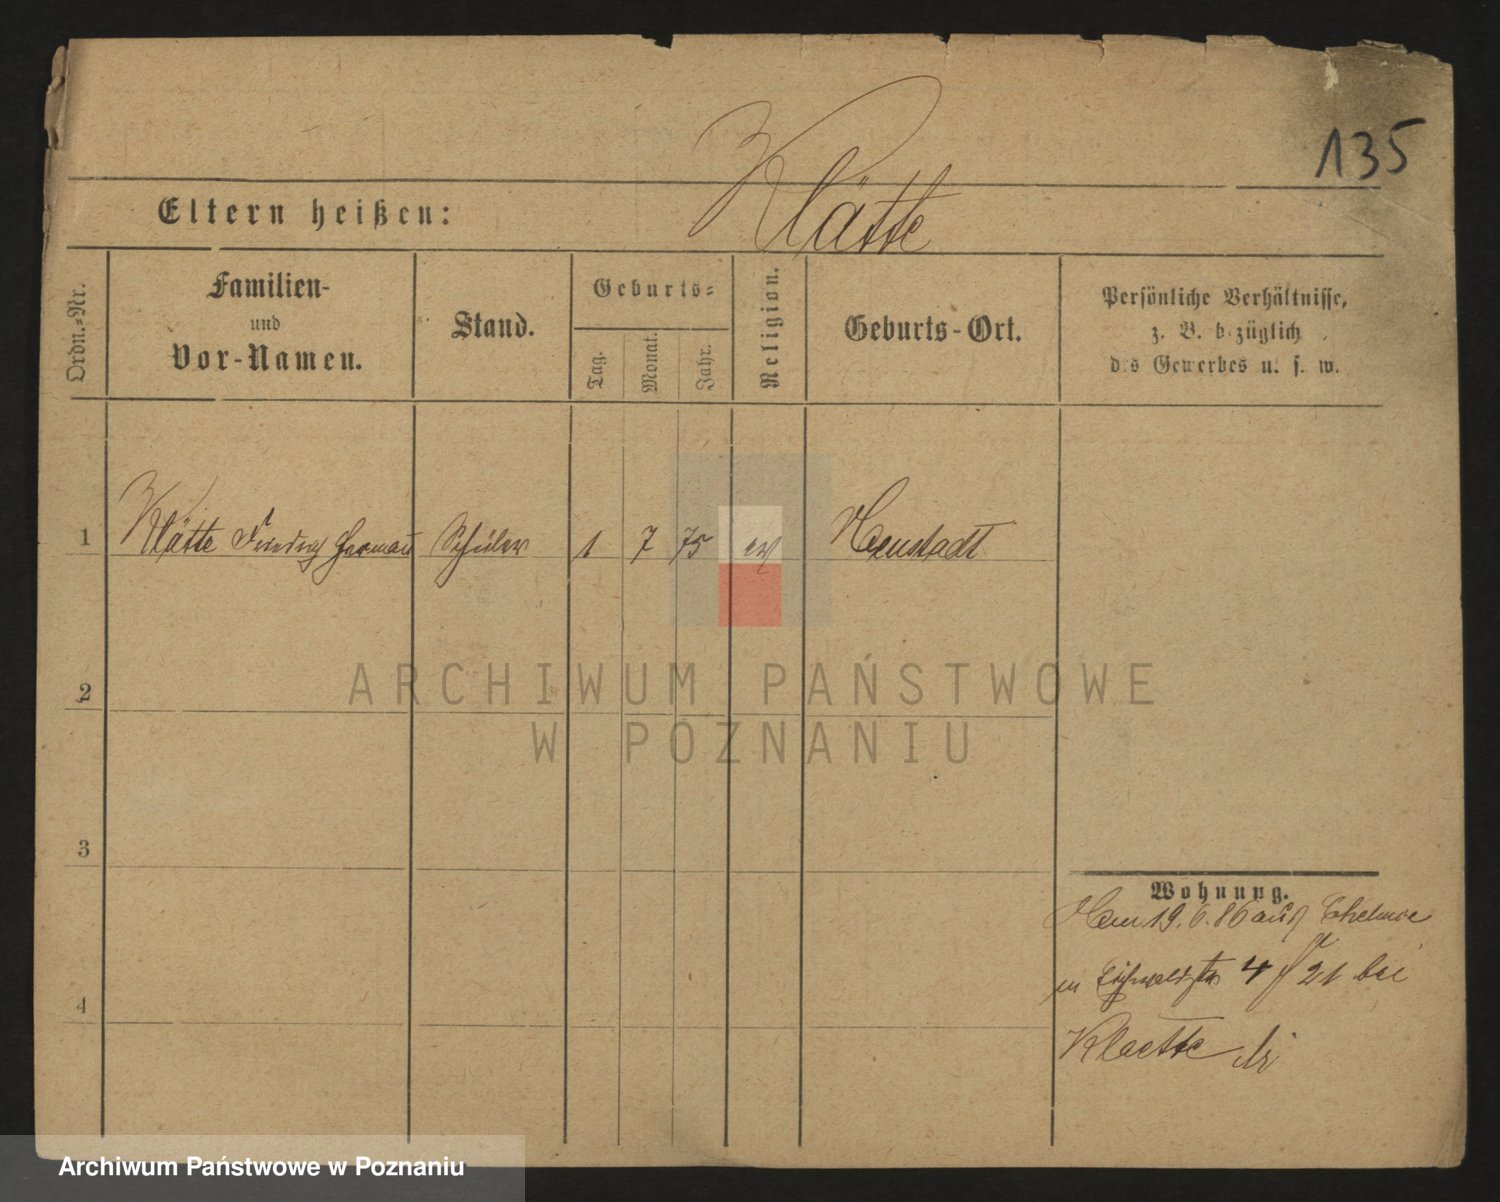 135
Klätte
Eltern heißen:
Ordn.=Nr.
Familien-
und
Vor-Namen.
Stand.
Geburts=
Tag.
Monat.
Jahr.
Religion.
Geburts-Ort.
Persönliche Verhältnisse,
z. B. bezüglich
des Gewerbes u. s. w.
1 Klätte Friedrich Hermann Schüler 1 7 75 ev
2
3
4
Wohnung.
19. 6. 86 aus
in 4 21 bei
Klaette
ARCHIWUM PAŃSTWOWE
W POZNANIU
Archiwum Państwowe w Poznaniu